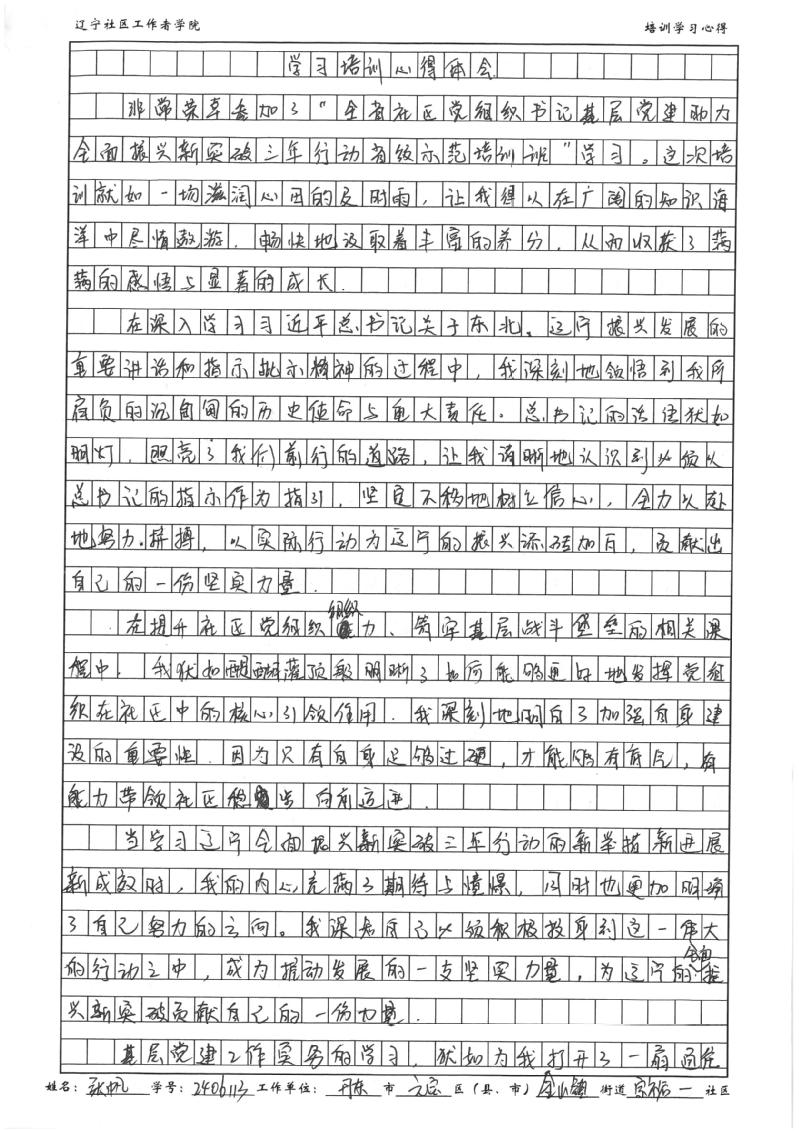 辽宁社区工作者学院 培训学习心得
学习培训心得体会
非常荣幸参加了“全省社区党组织书记基层党建助力
全面振兴新突破三年行动省级示范培训班”学习。这次培
训就如一场滋润心田的及时雨，让我得以在广阔的知识海
洋中尽情遨游，畅快地汲取着丰富的养分，从而收获了满
满的感悟与显著的成长.
在深入学习习近平总书记关于东北、辽宁振兴发展的
重要讲话和指示批示精神的过程中，我深刻地领悟到我所
肩负的沉甸甸的历史使命与重大责任。总书记的话语犹如
明灯，照亮了我们前行的道路，让我清晰地认识到必须以
总书记的指示作为指引，坚定不移地树立信心，全力以赴
地努力拼搏，以实际行动为辽宁的振兴添砖加瓦，贡献出
自己的一份坚实力量.
在提升社区党组织组织力、筑牢基层战斗堡垒的相关课
程中，我犹如醍醐灌顶般明晰了如何能够更好地发挥党组
织在社区中的核心引领作用.我深刻地明白了加强自身建
设的重要性.因为只有自身足够过硬，才能够有底气，有
能力带领社区稳步向前迈进.
当学习辽宁全面振兴新突破三年行动的新举措新进展
新成效时，我的内心充满了期待与憧憬，同时也更加明确
了自己努力的方向。我深知自己必须积极投身到这一伟大
的行动之中，成为推动发展的一支坚实力量，为辽宁的全面振
兴新突破贡献自己的一份力量.
基层党建工作实务的学习，犹如为我打开了一扇通往
姓名：张帆 学号：2406113 工作单位：丹东市 元宝区（县、市）金山镇街道 一社区